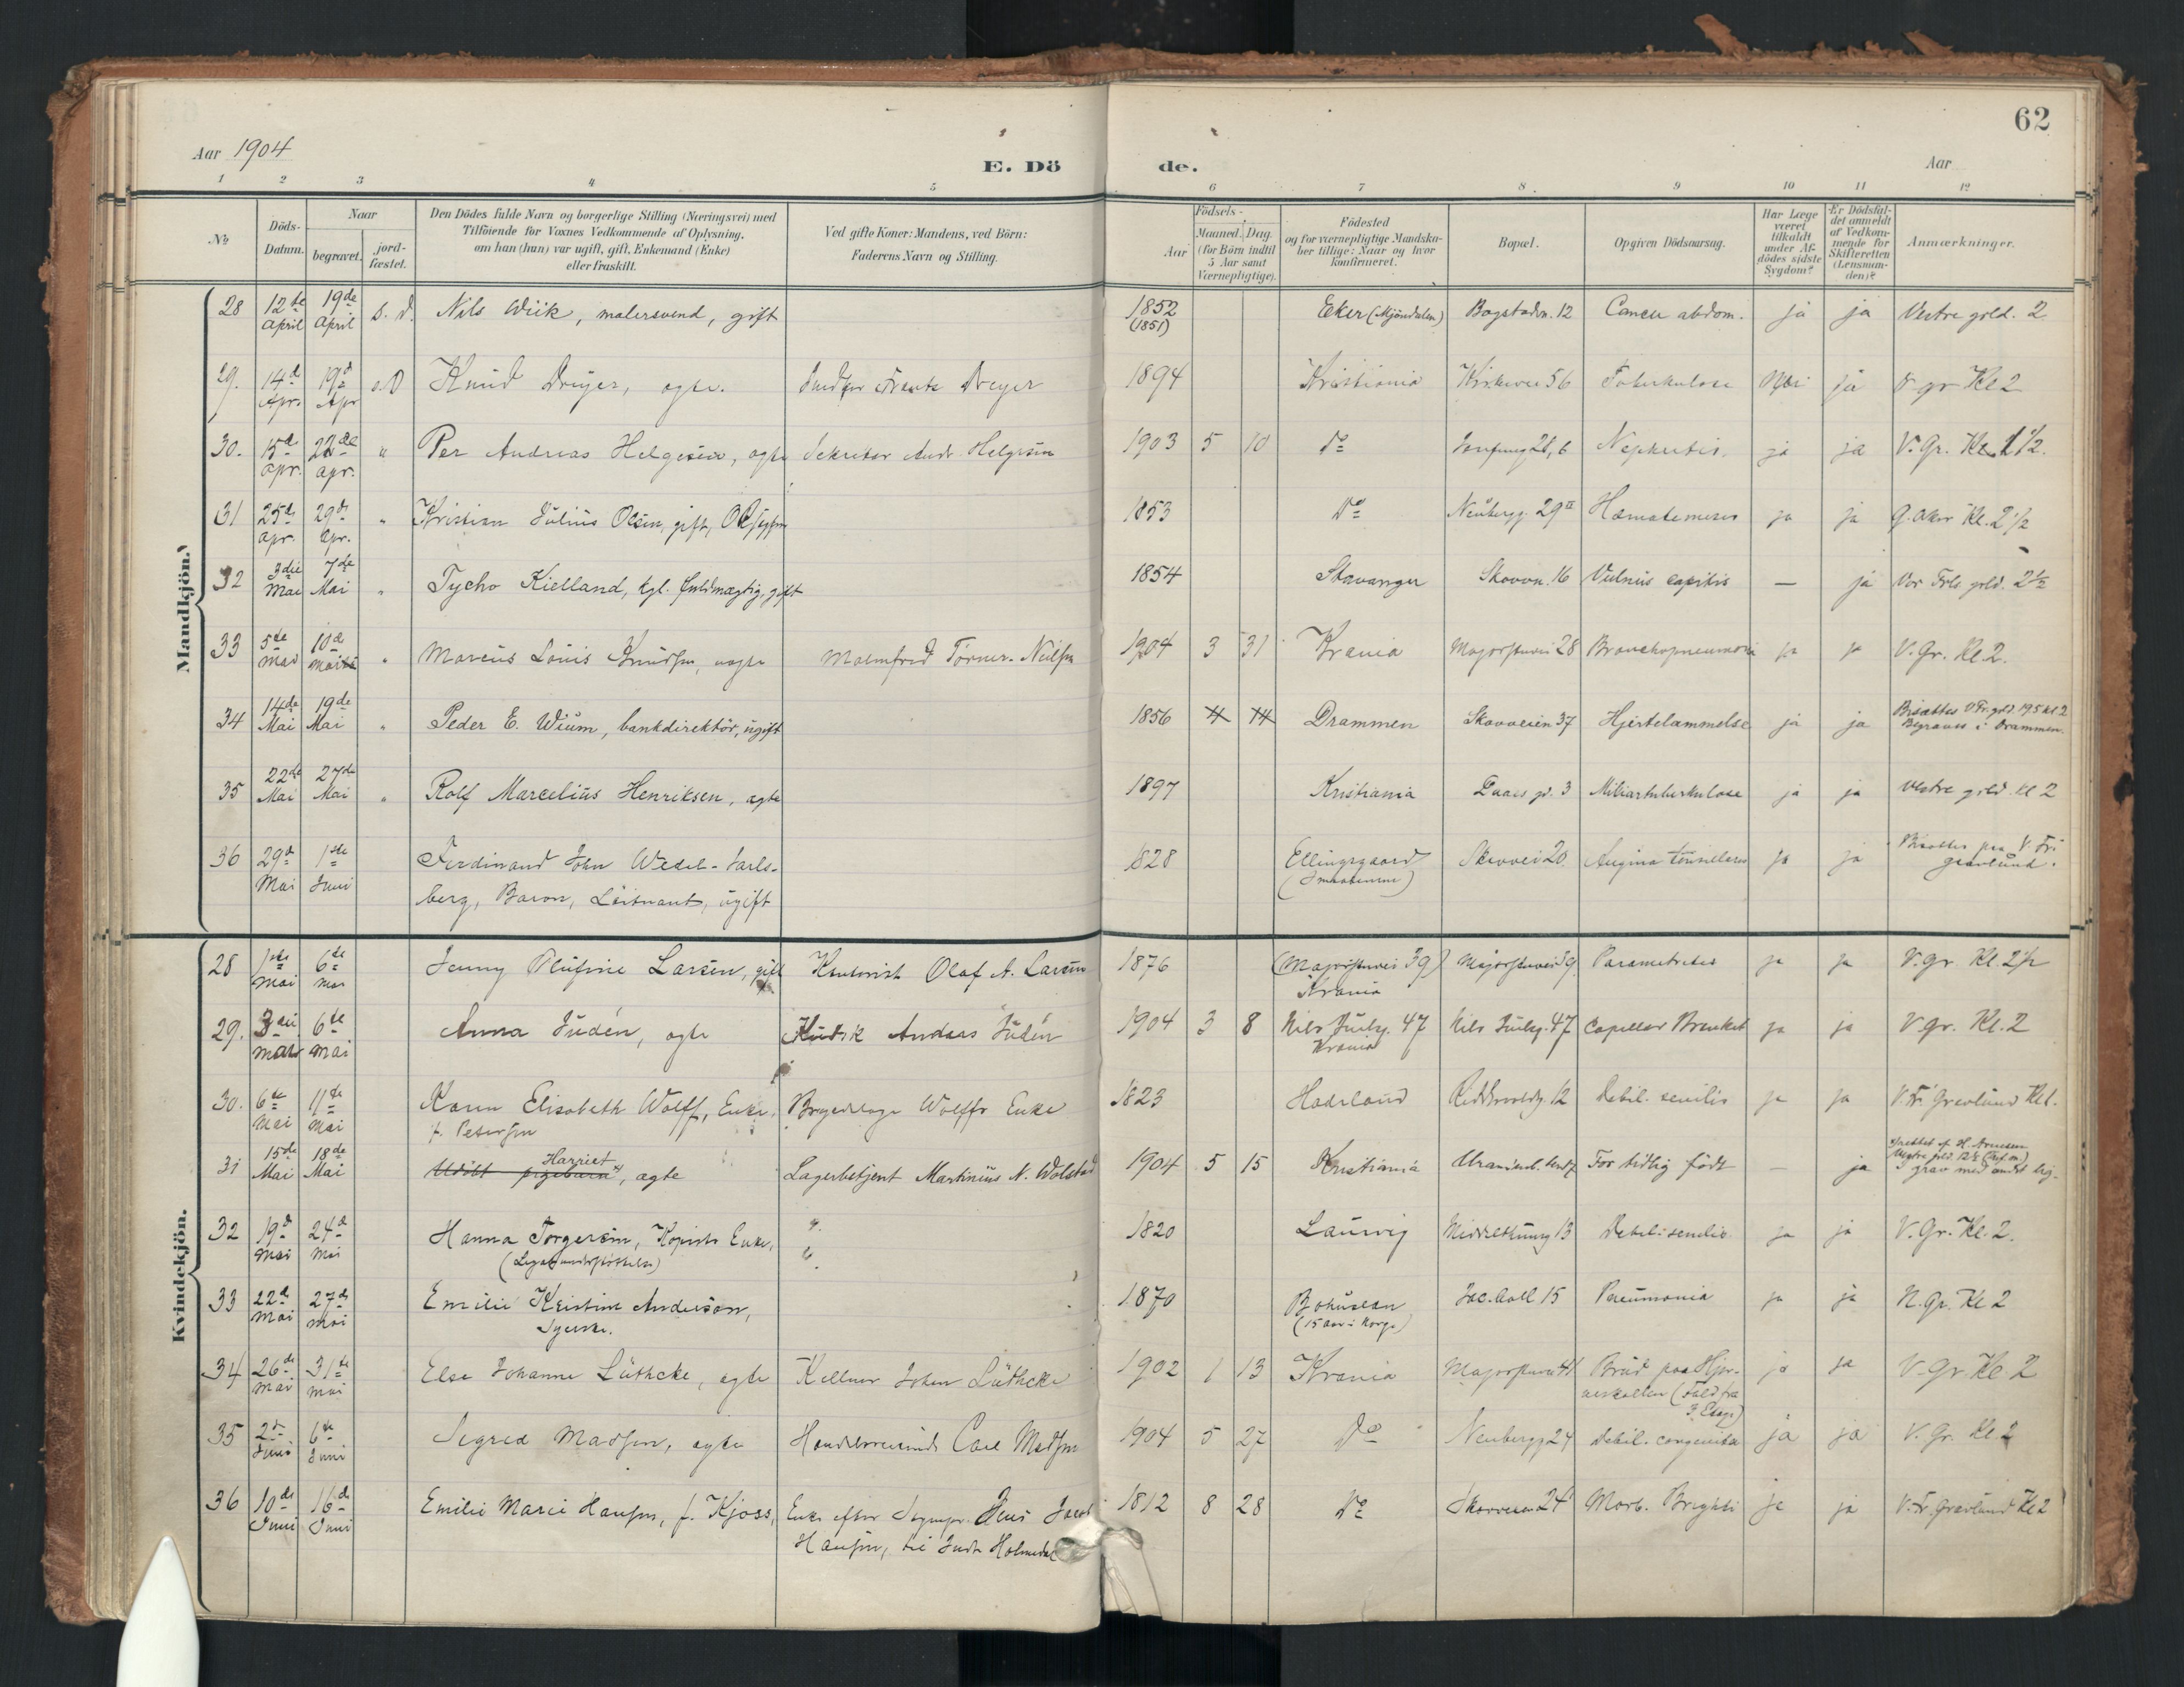 62
Aar 1904
E. Dö de.
Aar
1 2 3 4 5 6 7 8 9 10 11 12
No
Döds-Datum.
Naar
begravet.
jord-fæstet.
Den Dödes fulde Navn og borgerlige Stilling (Næringsvei) med
Tilföiende for Voxnes Vedkommende af Oplysning,
om han (hun) var ugift, gift, Enkemand (Enke)
eller fraskilt.
Ved gifte Koner: Mandens, ved Börn:
Faderens Navn og Stilling.
Födsels-
Aar
Maaned. Dag.
(for Börn indtil
5 Aar samt
Værnepligtige).
Födested
og for værnepligtige Mandska-
ber tillige: Naar og hvor
konfirmeret.
Bopæl.
Opgiven Dödsaarsag.
Har Læge
været
tilkaldt
under Af-
dödes sidste
Sygdom?
Er Dödsfal-
det anmeldt
af Vedkom-
mende for
Skifteretten
(Lensman-
den)?
Anmærkninger.
Mandkjön.
28 12te April 19de April s. d. Nils Wiik, malersvend, gift 1852 (1851) Eker (Mjöndalen) Bogstadv. 12 Cancer abdom. ja ja Vestre grld. 2
29. 14d Apr. 19d Apr s.D Knud Dreyer, ægte. Dreyer 1894 Kristiania Kirkevei 56 Tuberkulose Nei ja V gr Kl 2
30. 15d apr. 22de apr. " Per Andreas Helgesen, ægte Sekretær Andr. Helgesen 1903 5 10 do Nephritis. ja ja V. Gr. Kl. 1½.
31 25d apr. 29d apr. " Kristian Julius Olsen, gift, 1853 do Neubergg. 29 II Hæmatemesis ja ja Kl. 2½
32 3die Mai 7de Mai " Tycho Kielland, kgl. fuldmægtig, gift 1854 Stavanger Skovv. 16 Vulnus capitis — ja Vor Frls grld. 2½
33 5te Mai 10de Mai " Marcus Louis Knudsen, uægte Malmfrid Törner-Nielsen 1904 3 31 Krania Majorstuvei 28 Bronchopneumoni ja ja V. Gr. Kl. 2.
34 14de Mai 19de Mai " Peder E. Wium, bankdirektör, ugift 1856 4 14 Drammen Skovveien 37 Hjertelammelse ja ja Bisættes V Fr. grld 19 5 kl 2
Begraves i Drammen.
35 22de Mai 27de Mai " Rolf Marcelius Henriksen, ægte 1897 Kristiania 3 Miliartuberkulose ja ja Vestre grld. kl 2
36 29d Mai 1ste Juni Ferdinand John Wedel-Jarls-
berg, Baron, Löitnant, ugift 1828 Ellingsgaard
(Smaalenene) Skovvei 20. Angina tonsillaris ja ja Bisættes paa V. Fr.
gravlund.
Kvindekjön.
28 1ste Mai 6te Mai Jenny Olufine Larsen, gift Kontorist Olaf A. Larsen 1876 (Majorstuvei 39)
Krania Majorstuvei 39 Parametrites ja ja V. gr. Kl. 2½
29. 3die Mai 6te Mai Anna Judén, ægte Kudsk Andreas Judén 1904 3 8 Nils Juelsg. 47
Krania Nils Juelsg. 47 Capillær Bronkit ja ja V gr. Kl. 2
30. 6te Mai 11te Mai Karen Elisabeth Wolff, Enke,
f. Petersen Wolffs Enke 1823 Hadeland 12 Debil. senilis ja ja V. Fr. Gravlund Kl 1.
31 15de Mai 18de Mai Udöbt pigebarn Harriet, ægte Lagerbetjent Martinius N. Wolstad 1904 5 15 Kristiania For tidlig födt — ja i grav med andet lig.
32 19d Mai 24d Mai Hanna Torgersen, Kopists Enke,
(Legatunderstöttelse) " " 1820 Laurvig Middelthunsg 13 Debil: senilis ja ja V. Gr. Kl. 2.
33 22d Mai 27de Mai Emilie Kristine Anderson,
Syerske. 1870 Bohuslen
(15 aar i Norge) Jac. Aall 15 Pneumonia ja ja N. Gr. Kl 2
34 26de Mai 31te Mai Else Johanne Lüthcke, ægte Kellner Johan Lüthcke 1902 1 13 Krania Majorstuvei 41 Brud paa Hjer-
neskallen (Fald fra
3. Etage) ja ja V. Gr. Kl. 2
35 2d Juni 6te Juni Sigrid Madsen, ægte Handelsreisende Carl Madsen 1904 5 27 Do Neubergg 24 Debil. congenita ja ja V. Gr. Kl 2
36 10de Juni 16de Juni Emilie Marie Hansen, f. Kjoss, Enke efter Sognepr. Jens Jacob
Hansen, til Indr Holmedal 1812 8 28 Do Skovveien 24 Morb. Brighti ja ja V. Fr. Gravlund Kl 2